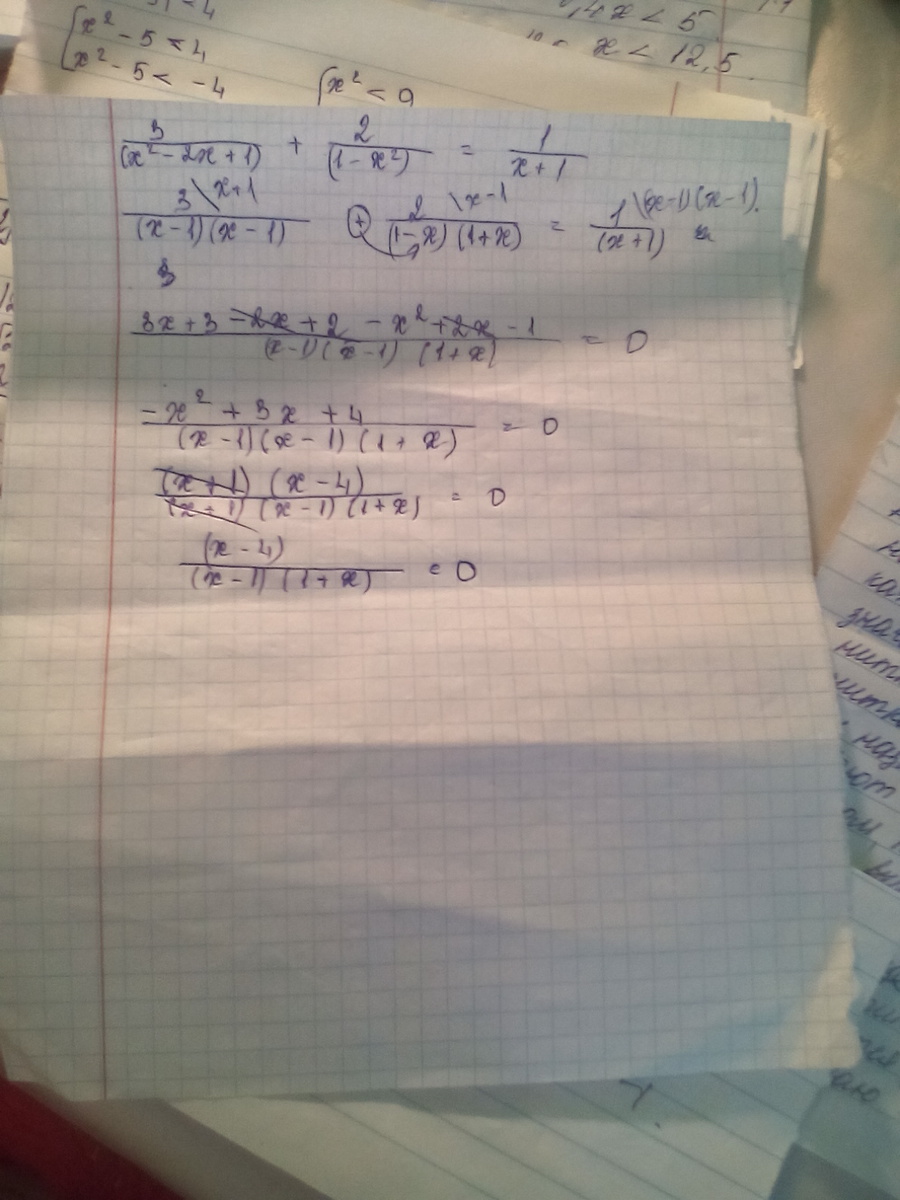 x² - 5 < 4
x² - 5 < -4
x² < 9
4x < 5
x < 12,5.
3/(x² - 2x + 1) + 2/(1 - x²) = 1/(x + 1)
3\x+1/(x - 1)(x - 1) + 2\x-1/(1 - x)(1 + x) = 1\(x-1)(x-1)./(x + 1)
3
3x + 3 - 2x + 2 - x² + 2x - 1/(x - 1)(x - 1)(1 + x) = 0
-x² + 3x + 4/(x - 1)(x - 1)(1 + x) = 0
(x + 1)(x - 4)/(x + 1)(x - 1)(1 + x) = 0
(x - 4)/(x - 1)(1 + x) = 0